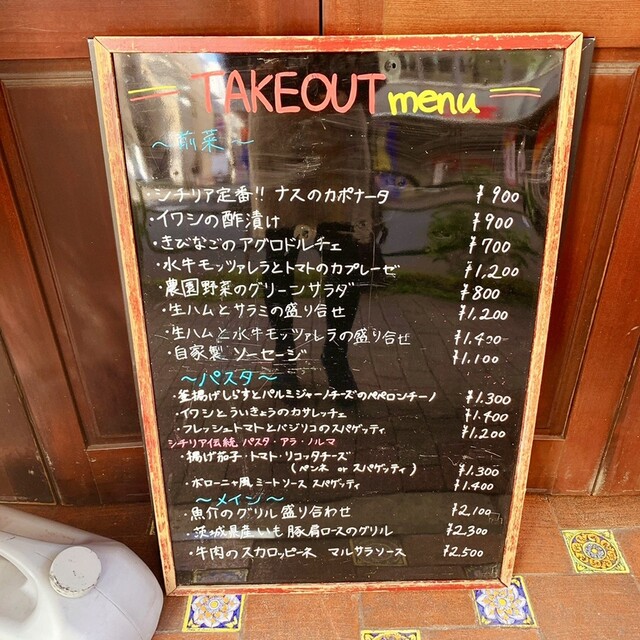 TAKEOUT menu
～前菜～
・シチリア定番!! ナスのカポナータ ¥900
・イワシの酢漬け ¥900
・きびなごのアグロドルチェ ¥700
・水牛モッツァレラとトマトのカプレーゼ ¥1,200
・農園野菜のグリーンサラダ ¥800
・生ハムとサラミの盛り合せ ¥1,200
・生ハムと水牛モッツァレラの盛り合せ ¥1,400
・自家製 ソーセージ ¥1,100
～パスタ～
・釜揚げしらすとパルミジャーノチーズのペペロンチーノ ¥1,300
・イワシとういきょうのカサレッチェ ¥1,400
・フレッシュトマトとバジリコのスパゲッティ ¥1,200
シチリア伝統 パスタ・アラ・ノルマ
・揚げ茄子・トマト・リコッタチーズ
(ペンネ or スパゲッティ) ¥1,300
・ボローニャ風ミートソース スパゲッティ ¥1,400
～メイン～
・魚介のグリル盛り合わせ ¥2,100
・茨城県産いも豚肩ロースのグリル ¥2,300
・牛肉のスカロッピーネ マルサラソース ¥2,500